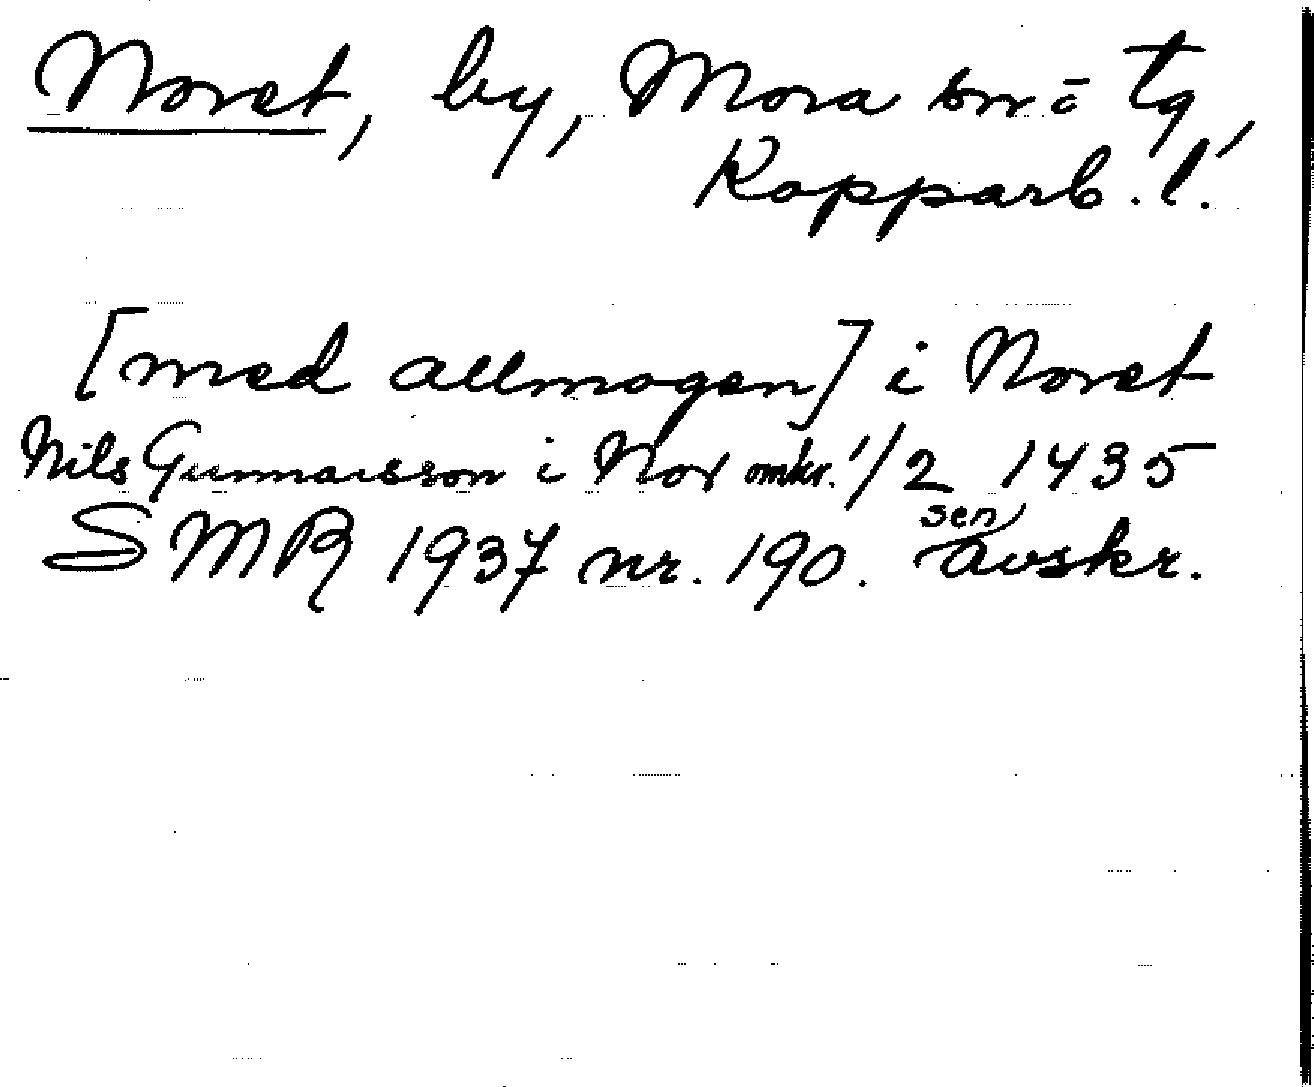 Noret, by, Mora sn o tg,
Kopparb. l.
[med allmogen] i Noret
Nils Gunnarsson i Nor omkr. 1/2 1435
SMR 1937 nr. 190. sen avskr.